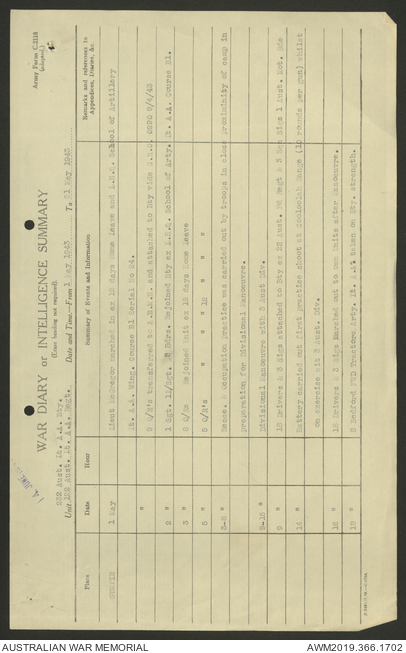 Army Form C.2118
(Adapted.)
WAR DIARY or INTELLIGENCE SUMMARY
(Erase heading not required).
232 Aust. Lt. A.A. Bty.
Unit 122 Aust. Lt. A.A. Regt.
Date and Time:—From 1 May 1943 To 31 May 1943
Place Date Hour Summary of Events and Information Remarks and references to Appendices, Diaries, &c.
1 May Lieut McGregor marched in ex 12 days Home Leave and L.H.Q. School of Artillery
Lt. A.A. Wing. Course 51 Serial No 24.
" 9 O/R's transferred to A.E.M.E. and attached to Bty vide G.R.O. 0290 9/4/43
2 " 1 Sgt. 1 L/Sgt. Bdrs. Rejoined Bty ex L.H.Q. School of Arty. Lt. A.A. Course 51.
3 " 2 O/Rs Rejoined Unit ex 12 days Home Leave
5 " 5 O/R's " " " 12 " " "
3-8 " Recce. & occupation practice was carried out by troops in close proximinity of camp in
preparation for Divisional Manouvre.
8-15 " Divisional Manouvre with 3 Aust Div.
9 " 18 Drivers & 3 Sigs attached to Bty ex 22 Aust. Regt & 3 Sigs 1 Aust. Mot. Bde
14 " Battery carried out first practice shoot at Cooloolah Range (10 rounds per gun) whilst
on exercise wit 3 Aust. Div.
18 " 18 Drivers & 3 Sigs Marched out to own Units after Manouvre.
19 " 8 Bedford FWD Tractors Arty. Lt. A.A taken on Bty. strength.
AUSTRALIAN WAR MEMORIAL
AWM2019.366.1702